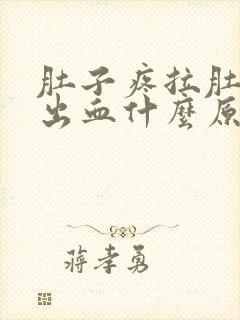 肚子疼拉肚
出血什麼原
蔣孝勇